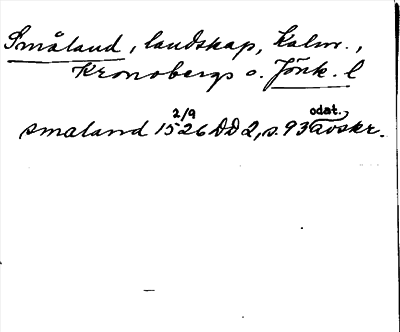 Småland, landskap, Kalm.,
Kronobergs o. Jönk. l
smaland 1526 2/9 DD 2, s. 93 odat. avskr.